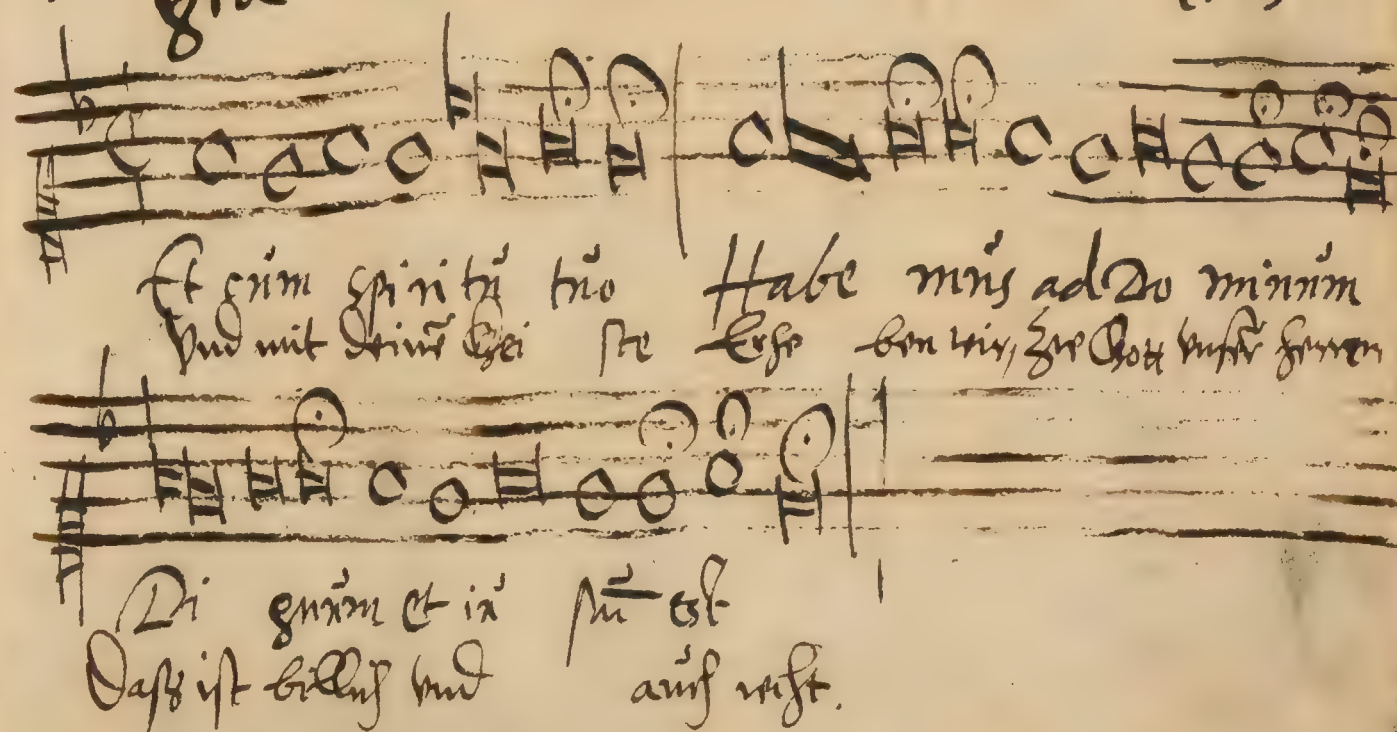 Et cum spiritu tuo Habe mus ad Do minum
Vnd mit deinē Gei ste Erhe ben wir, Zue Gott vnserē herren
Di gnum et iu stū est
Dass ist billich vnd auch recht.